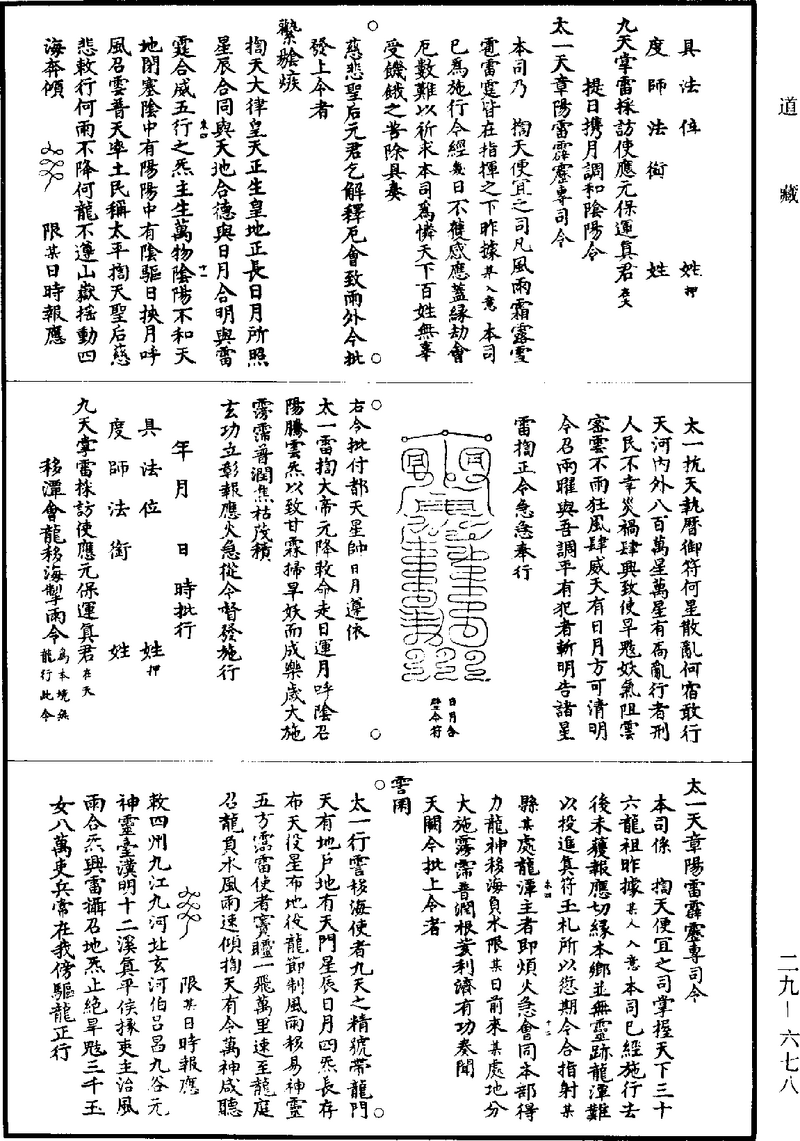 道藏
具法位　姓押
度師法銜　姓
九天掌雷採訪使應元保運真君在天
提日攜月調和陰陽令
太一天章陽雷霹靂專司令
本司乃　掏天便宜之司凡風雨霜露雪
雹雷霆皆在指揮之下昨據某入意本司
已為施行今經幾日不獲感應蓋緣劫會
厄數難以祈求本司為憐天下百姓無辜
受饑餓之苦除具奏
慈悲聖后元君乞解釋厄會致雨外今批
發上令者
掏天大律皇天正生皇地正長日月所照
星辰合同與天地合德與日月合明與雷
霆合威五行之炁主生萬物陰陽不和天
地閉塞陰中有陽陽中有陰驅日挾月呼
風召雲普天率土民稱太平掏天聖后慈
悲敕行何雨不降何龍不遵山嶽搖動四
海奔傾　限某日時報應
太一抗天執曆御符何星散亂何宿敢行
天河內外八百萬星萬星有高亂行者刑
人民不幸災禍肆興致使旱魃妖氣阻雲
密雲不雨狂風肆威天有日月方可清明
令召雨曜與吾調平有犯者斬明告諸星
雷掏正令急急奉行
日月合
璧令符
右令批付部天星帥日月遵依
太一雷掏大帝元降敕命走日運月呼陰召
陽騰雲炁以致甘霖掃旱妖而成樂歲大施
霶霈普潤焦枯茂積
玄功立彰報應火急從令督發施行
年月　日　時批行
具法位　姓押
度師法銜　姓
九天掌雷採訪使應元保運真君在天
移潭會龍移海掣雨令為本境無龍行此令
太一天章陽雷霹靂專司令
本司係　掏天便宜之司掌握天下三十
六龍祖昨據某人入意本司已經施行去
後未獲報應切緣本鄉並無靈跡龍潭難
以投進真符玉札所以愆期令合指射某
縣某處龍潭主者即煩火急會同本部得
力龍神移海負水限某日前來某處地分
大施霶霈普潤根荄利濟有功奏聞
天闕今批上令者
太一行雲移海使者九天之精號帶龍門
天有地戶地有天門星辰日月四炁長存
布天役星布地役龍節制風雨移易神靈
五方濡雷使者一飛萬里速至龍庭
召龍負水風雨速傾掏天有令萬神咸聽
限某日時報應
敕四州九江九河北玄河伯呂昌九谷元
神靈臺漢明十二溪真平侯掾吏主治風
雨合炁興雷攝召地炁止絕旱魃三千玉
女八萬吏兵常在我傍驅龍正行
二九—六七八